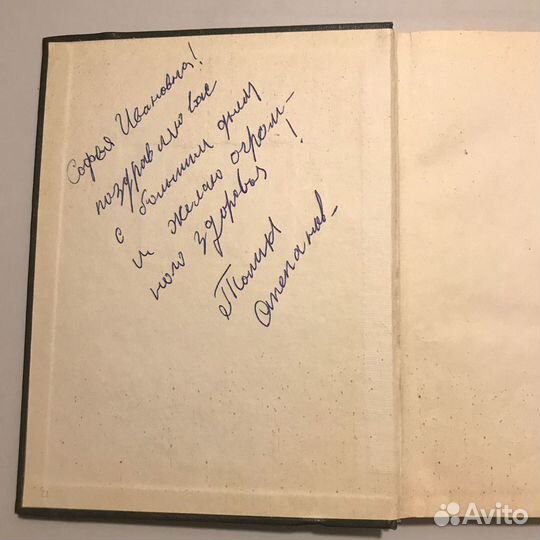 Софья Ивановна!
поздравляю вас
с большим днём
и желаю огром-
ного здоровья!
Толик
Степанов-
Avito